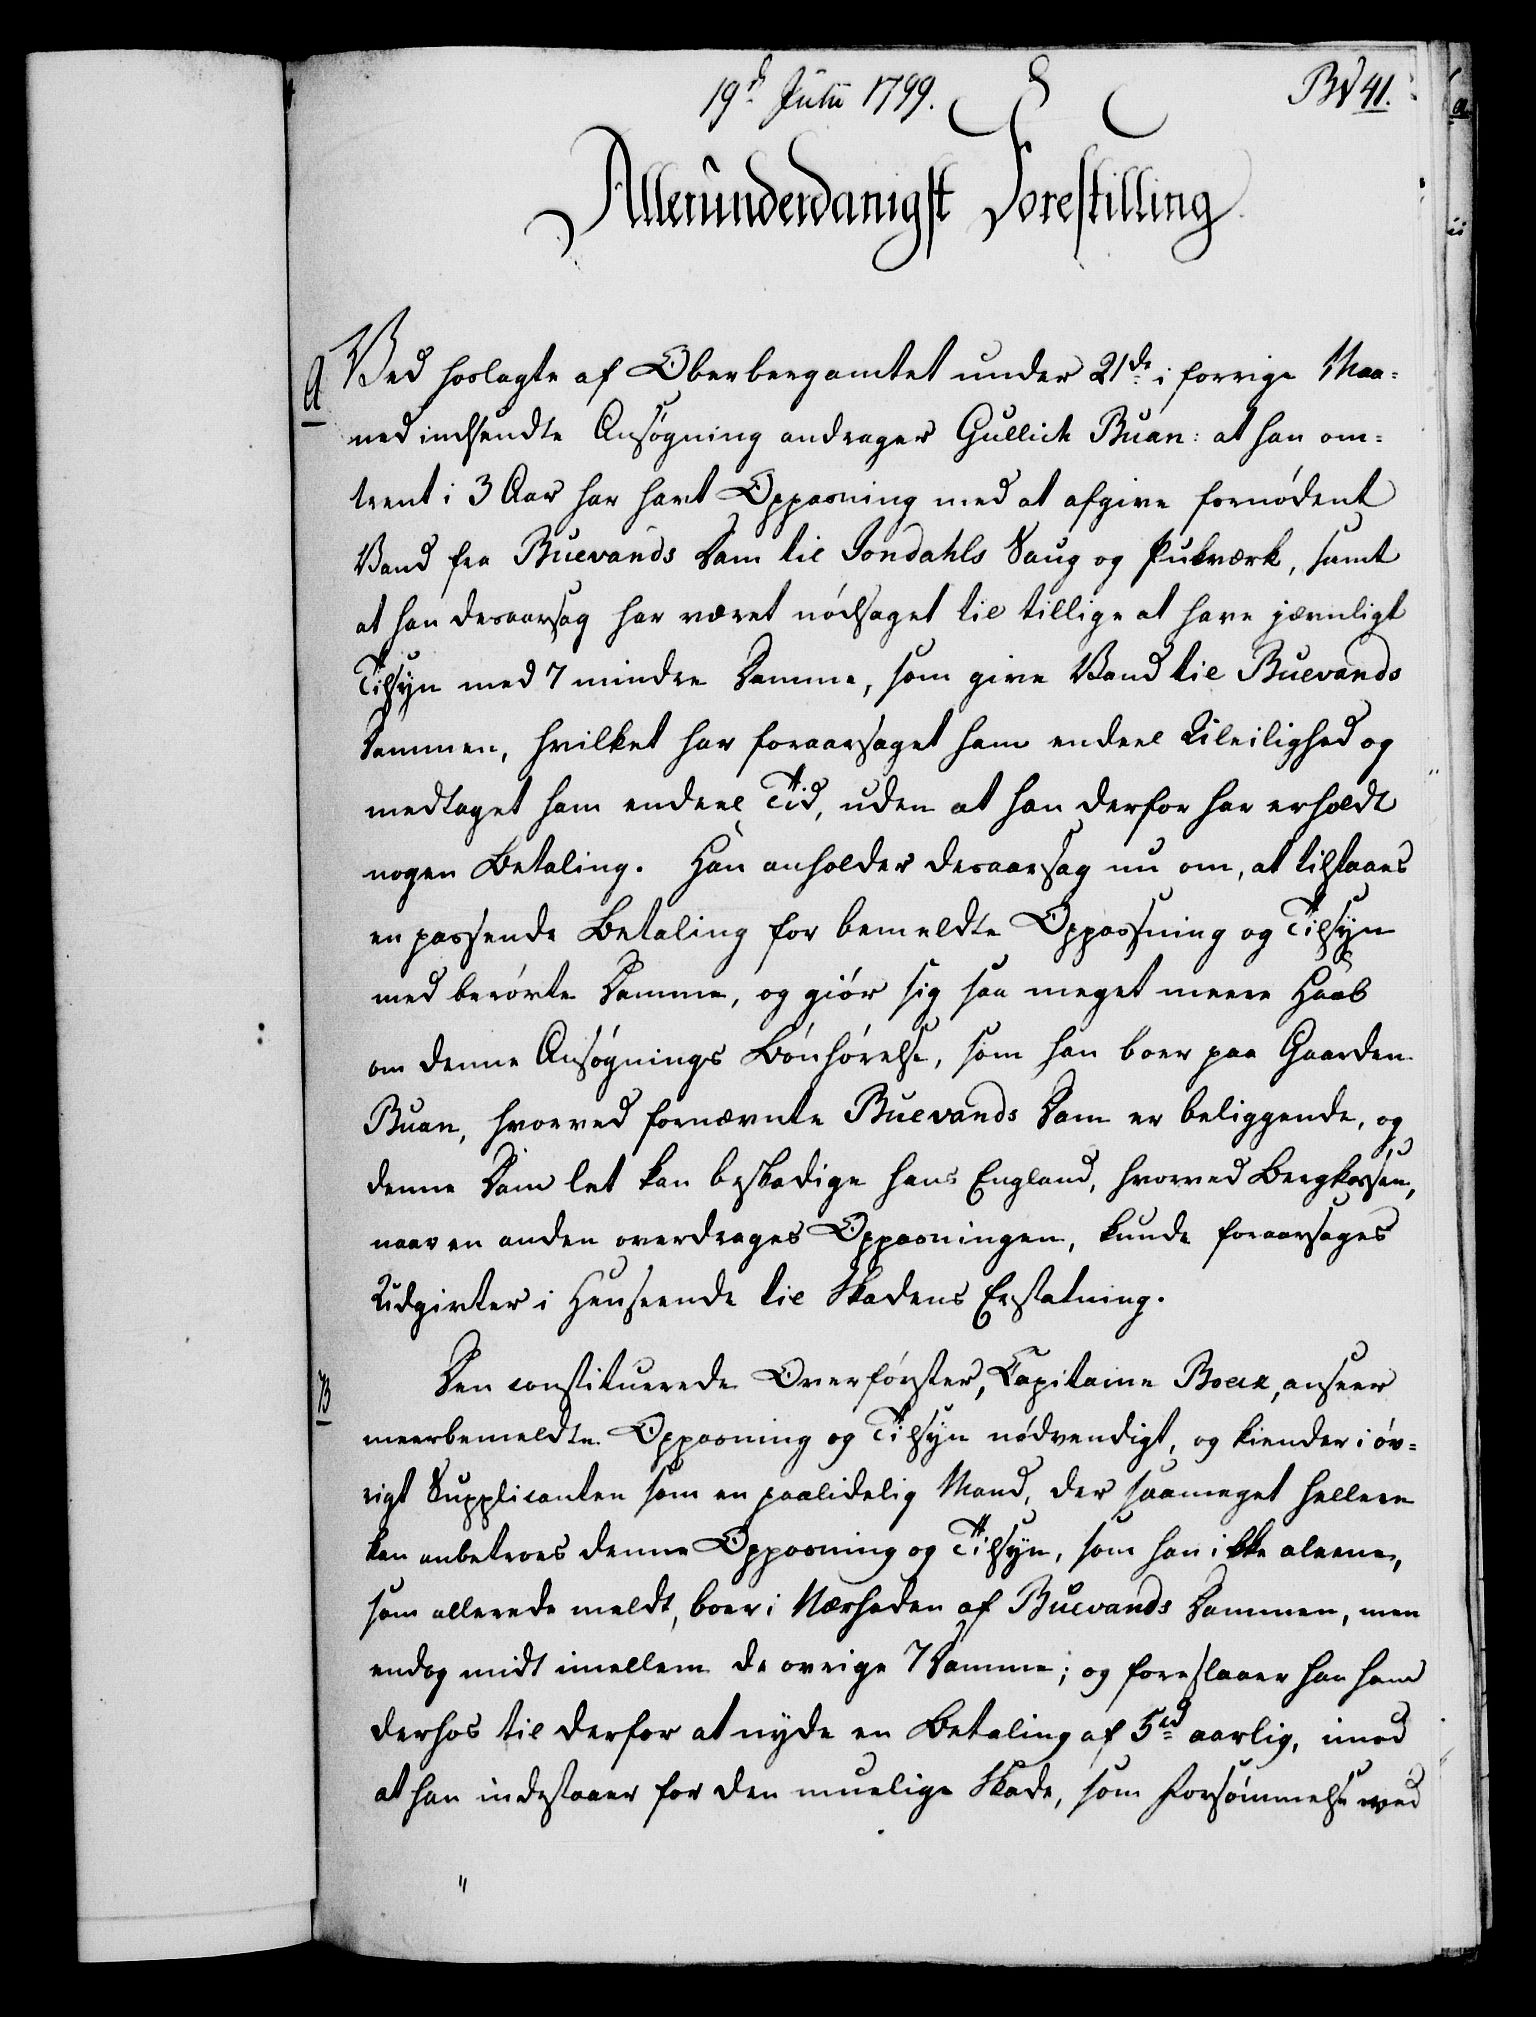 19d Julii 1799.
BV 41.
Allerunderdanigst Forestilling
A
Ved hoslagte af Oberbergamtet under 21de i forrige Maa=
ned indsendte Ansøgning andrager Gullich Buan: at han om=
trent i 3 Aar har havt Oppasning med at afgive fornødent
Vand fra Buevands Dam til Jondahls Saug og Pukværk, samt
at han desaarsag har været nødsaget til tillige at have jævnligt
Tilsyn med 7 mindre Damme, som give Vand til Buevands
Dammen, hvilket har foraarsaget ham endeel Uleilighed og
medtaget ham endeel Tid, uden at han derfor har erholdt
nogen Betaling. Han anholder desaarsag nu om, at tilstaaes
en passende Betaling for bemeldte Oppassning og Tilsyn
med berørte Damme, og giør sig saa meget meere Haab
om denne Ansøgnings Bønhørelse, som han boer paa Gaarden
Buan, hvorved fornævnte Buevands Dam er beliggende, og
denne Dam let kan beskadige hans England, hvorved Bergkassen,
naar en anden overdrages Oppasningen, kunde foraarsages
Udgivter i Henseende til Skadens Erstatning.
B
Den constituerede Overførster, Capitaine Boeck, anseer
meerbemeldte Oppasning og Tilsyn nødvendigt, og kiender i øv=
rigt Supplicanten som en paalidelig Mand, der saameget hellere
kan anbetroes denne Oppasning og Tilsyn, som han ikke aleene,
som allerede meldt, boer i Nærheden af Buevands Dammen, men
endog midt imellem de øvrige 7 Damme; og foreslaaer han ham
derhos til derfor at nyde en Betaling af 5rd aarlig, imod
at han indestaaer for den muelige Skade, som Forsømmelse ved